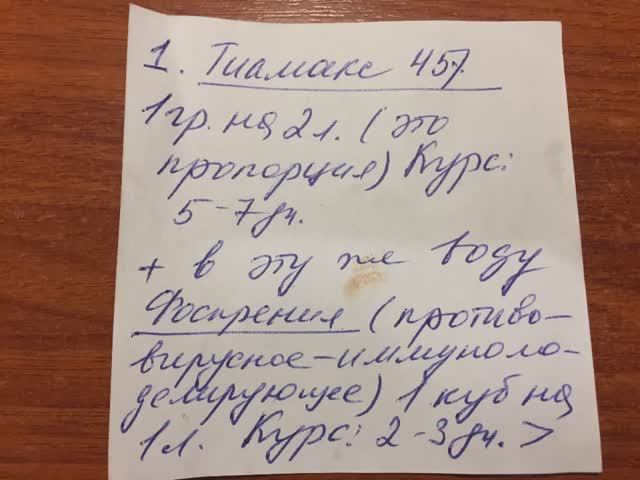 1. Тиамакс 45%
1 гр. на 2 л. (это
пропорция) Курс:
5-7 дн.
+ в эту же воду
Фоспрения (противо-
вирусное-иммуномо-
делирующее) 1 куб на
1 л. Курс: 2-3 дн. >